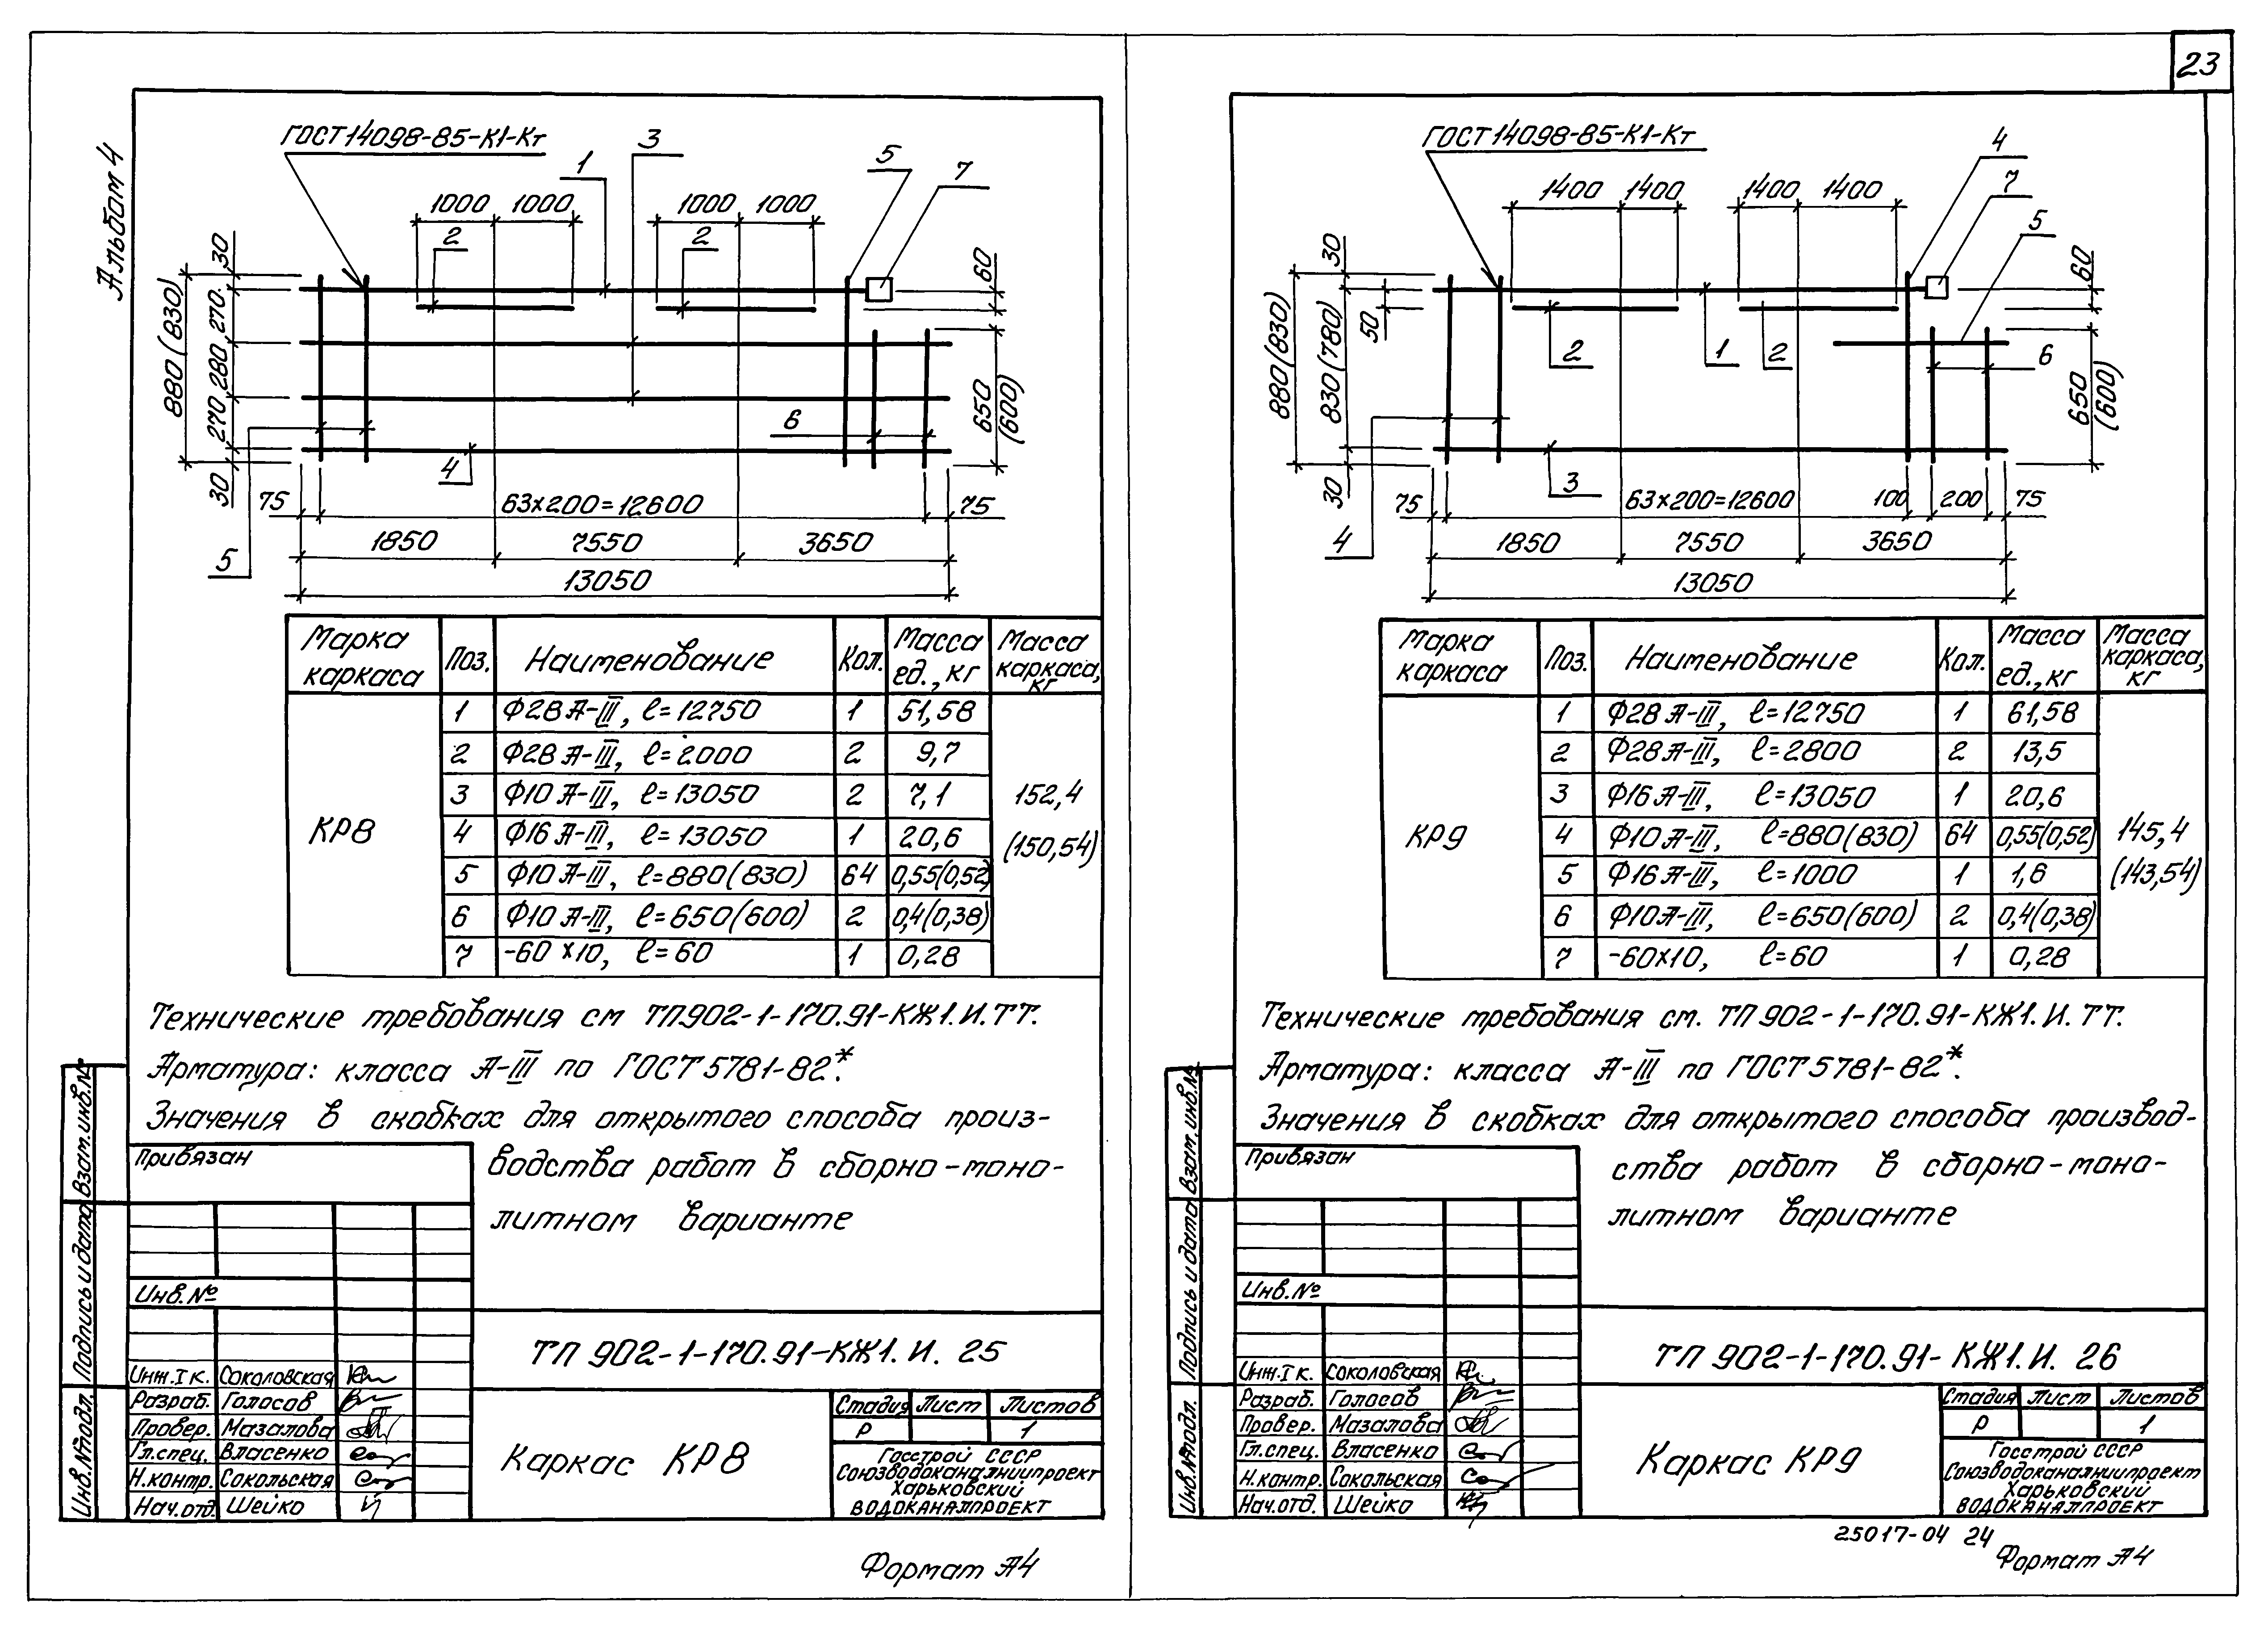 23
Альбом 4
ГОСТ 14098-85-К1-Кт
3
1
5
7
1000 1000 1000 1000
2 2
30
270
280
270
30
880 (830)
60
650
(600)
6
4
5
75 63x200=12600 75
1850 7550 3650
13050
Марка каркаса Поз. Наименование Кол. Масса ед., кг Масса каркаса, кг
КР8
1 Ф28 А-III, ℓ=12750 1 51,58
2 Ф28 А-III, ℓ=2000 2 9,7
3 Ф10 А-III, ℓ=13050 2 7,1
4 Ф16 А-III, ℓ=13050 1 20,6
5 Ф10 А-III, ℓ=880(830) 64 0,55(0,52)
6 Ф10 А-III, ℓ=650(600) 2 0,4(0,38)
7 -60x10, ℓ=60 1 0,28
152,4
(150,54)
Технические требования см ТП902-1-170.91-КЖ1.И.ТТ.
Арматура: класса А-III по ГОСТ 5781-82*.
Значения в скобках для открытого способа произ-
водства работ в сборно-моно-
литном варианте
Привязан
Инв.№
Взам.инв.№
Подпись и дата
Инв.№подл.
ТП 902-1-170.91-КЖ1.И. 25
Инж.I к. Соколовская
Разраб. Голосов
Провер. Мазалова
Гл.спец. Власенко
Н.контр. Сокольская
Нач.отд. Шейко
Каркас КР8
Стадия Лист Листов
Р 1
Госстрой СССР
Союзводоканалниипроект
Харьковский
ВОДОКАНАЛПРОЕКТ
Формат А4
ГОСТ 14098-85-К1-Кт
4
7
5
1400 1400 1400 1400
30
50
880(830)
830(780)
30
60
650
(600)
2 1 2
6
4
3
75 63x200=12600 100 200 75
1850 7550 3650
13050
Марка каркаса Поз. Наименование Кол. Масса ед., кг Масса каркаса, кг
КР9
1 Ф28 А-III, ℓ=12750 1 61,58
2 Ф28 А-III, ℓ=2800 2 13,5
3 Ф16 А-III, ℓ=13050 1 20,6
4 Ф10 А-III, ℓ=880(830) 64 0,55(0,52)
5 Ф16 А-III, ℓ=1000 1 1,6
6 Ф10 А-III, ℓ=650(600) 2 0,4(0,38)
7 -60x10, ℓ=60 1 0,28
145,4
(143,54)
Технические требования см. ТП 902-1-170.91-КЖ1.И.ТТ.
Арматура: класса А-III по ГОСТ 5781-82*.
Значения в скобках для открытого способа производ-
ства работ в сборно-моно-
литном варианте
Привязан
Инв.№
Взам.инв.№
Подпись и дата
Инв.№подл.
ТП 902-1-170.91-КЖ1.И. 26
Инж.I к. Соколовская
Разраб. Голосов
Провер. Мазалова
Гл.спец. Власенко
Н.контр. Сокольская
Нач.отд. Шейко
Каркас КР9
Стадия Лист Листов
Р 1
Госстрой СССР
Союзводоканалниипроект
Харьковский
ВОДОКАНАЛПРОЕКТ
25017-04 24
Формат А4